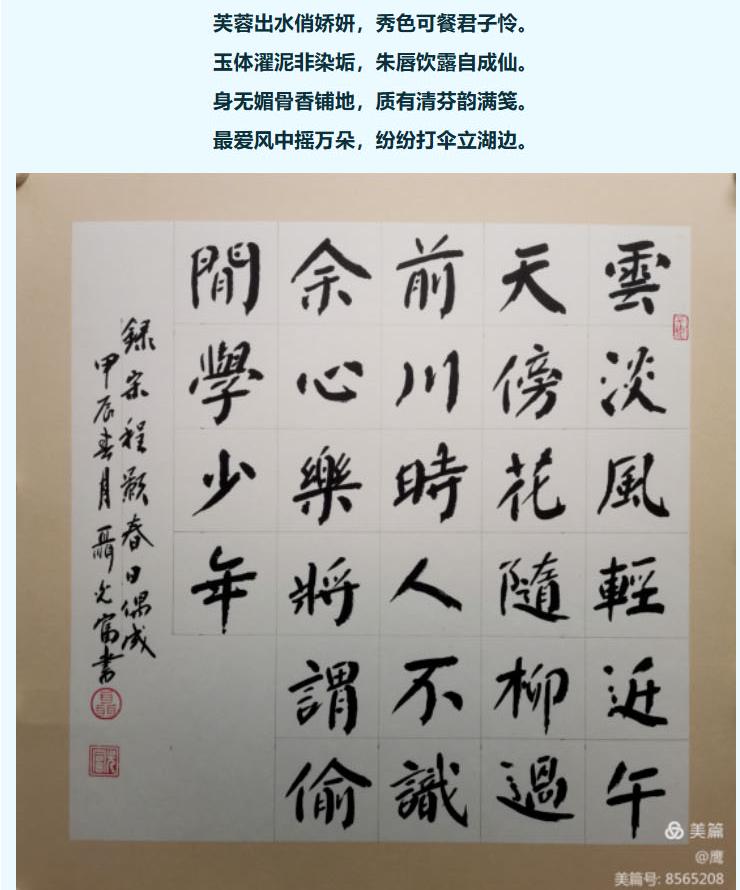 芙蓉出水俏娇妍，秀色可餐君子怜。
玉体濯泥非染垢，朱唇饮露自成仙。
身无媚骨香铺地，质有清芬韵满笺。
最爱风中摇万朵，纷纷打伞立湖边。
雲淡風輕近午
天傍花隨柳過
前川時人不識
余心樂將謂偷
閒學少年
録宋程颢春日偶成
甲辰春月聶光富书
美篇
@鹰
美篇号: 8565208